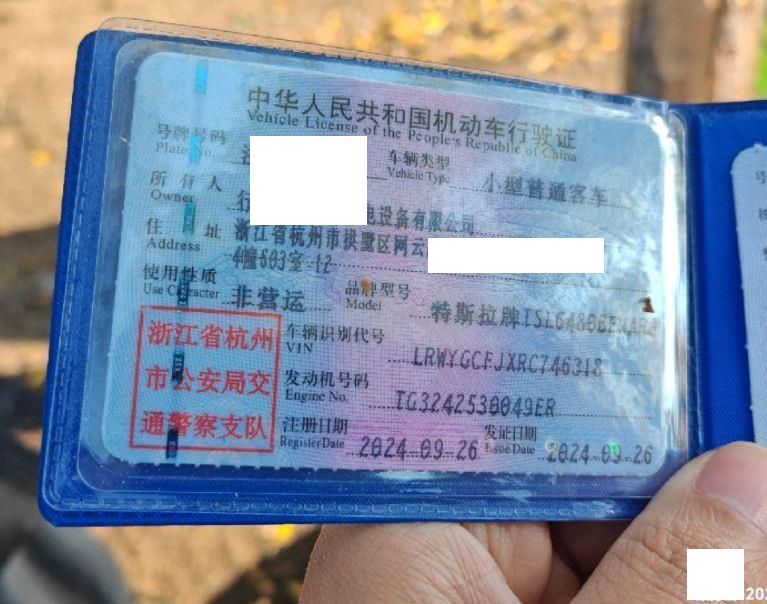 中华人民共和国机动车行驶证
Vehicle License of the People's Republic of China
号牌号码
Plate No.
车辆类型
Vehicle Type
小型普通客车
所有人
Owner
电设备有限公司
住址
Address
浙江省杭州市拱墅区网云
4幢603室-12
使用性质
Use Character
非营运
品牌型号
Model
特斯拉牌
浙江省杭州
市公安局交
通警察支队
车辆识别代号
VIN
LRWYGCFJXRC746318
发动机号码
Engine No.
TG3242530049ER
注册日期
Register Date
2024-09-26
发证日期
Issue Date
2024-09-26